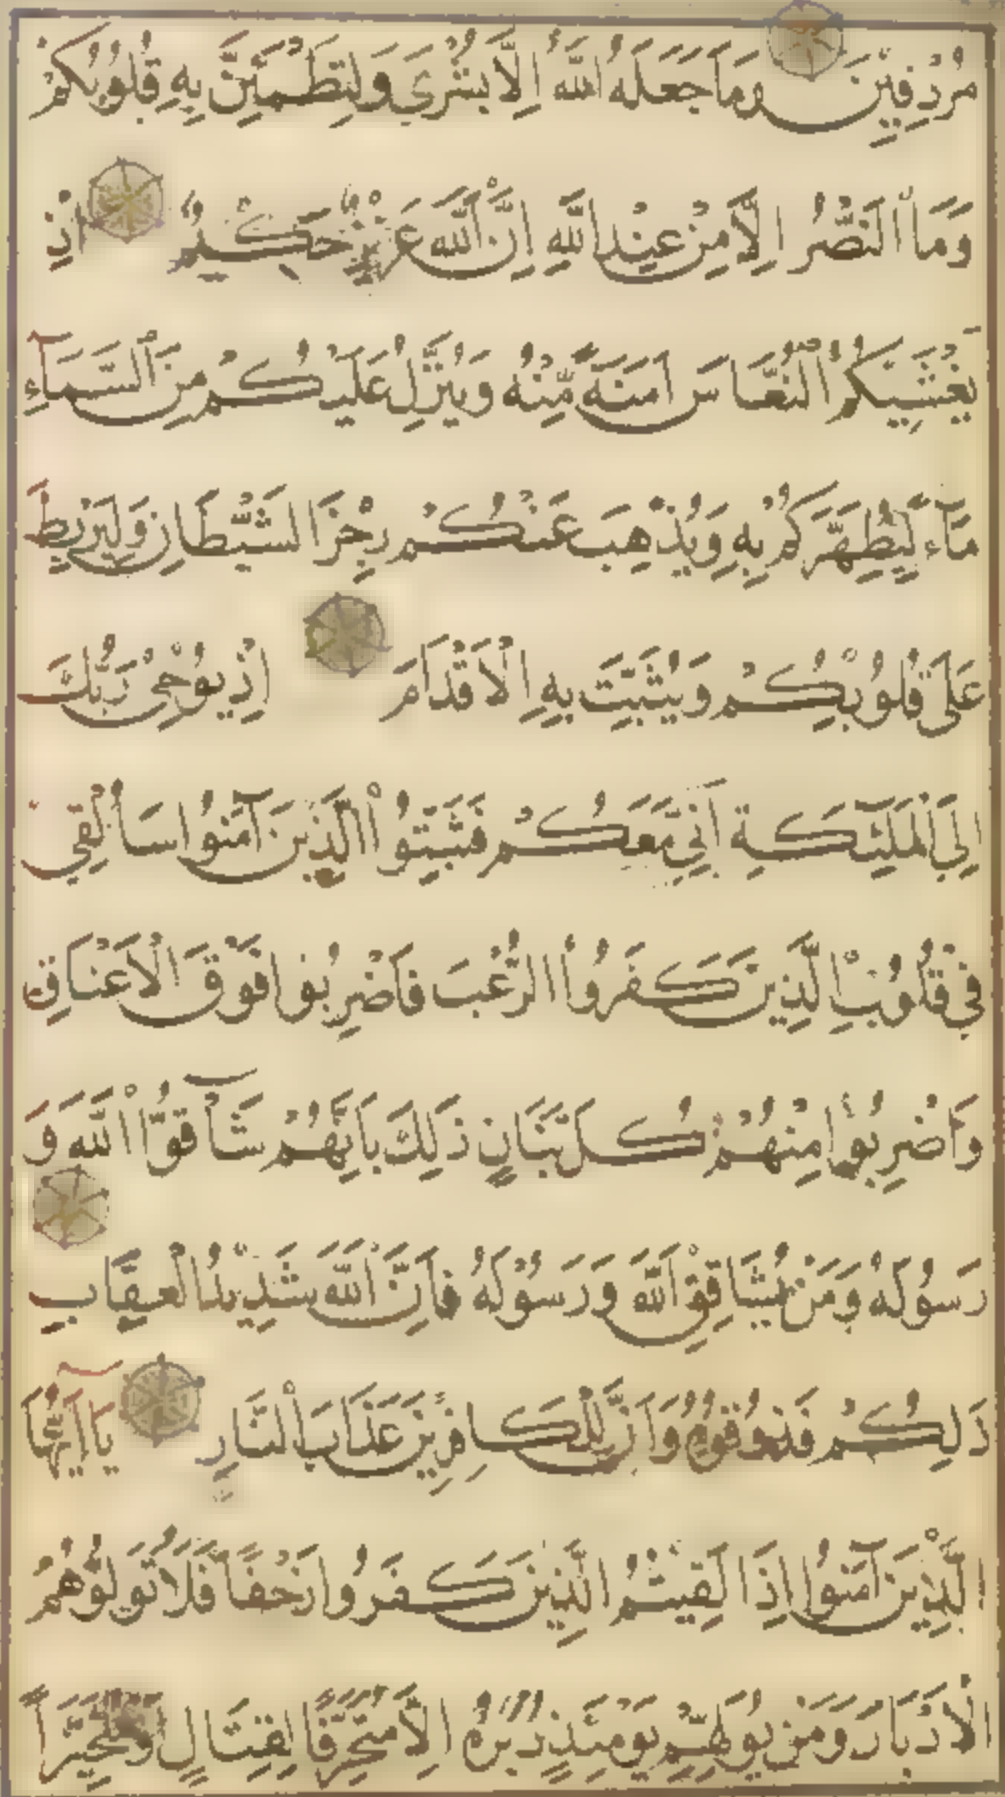 مُرْدِفِينَ وَمَا جَعَلَهُ اللَّهُ اِلَّا بُشْرَى وَلِتَطْمَئِنَّ بِهِ قُلُوبُكُمْ
وَمَا النَّصْرُ اِلَّا مِنْ عِنْدِ اللَّهِ اِنَّ اللَّهَ عَزِيزٌ حَكِيمٌ اِذْ
يُغَشِّيكُمُ النُّعَاسَ اَمَنَةً مِنْهُ وَيُنَزِّلُ عَلَيْكُمْ مِنَ السَّمَآءِ
مَآءً لِيُطَهِّرَكُمْ بِهِ وَيُذْهِبَ عَنْكُمْ رِجْزَ الشَّيْطَانِ وَلِيَرْبِطَ
عَلَى قُلُوبِكُمْ وَيُثَبِّتَ بِهِ الْاَقْدَامَ اِذْ يُوْحِى رَبُّكَ
اِلَى الْمَلَئِكَةِ اَنِّى مَعَكُمْ فَثَبِّتُوا الَّذِينَ آمَنُوا سَاُلْقِى
فِى قُلُوبِ الَّذِينَ كَفَرُوا الرُّعْبَ فَاضْرِبُوا فَوْقَ الْاَعْنَاقِ
وَاضْرِبُوا مِنْهُمْ كُلَّ بَنَانٍ ذَلِكَ بِاَنَّهُمْ شَآقُّوا اللَّهَ وَ
رَسُولَهُ وَمَنْ يُشَاقِقِ اللَّهَ وَرَسُوْلَهُ فَاِنَّ اللَّهَ شَدِيدُ الْعِقَابِ
ذَلِكُمْ فَذُوقُوهُ وَاَنَّ لِلْكَافِرِينَ عَذَابَ النَّارِ يَا اَيُّهَا
الَّذِينَ آمَنُوا اِذَا لَقِيتُمُ الَّذِينَ كَفَرُوا زَحْفًا فَلَا تُوَلُّوْهُمُ
الْاَدْبَارَ وَمَنْ يُوَلِّهِمْ يَوْمَئِذٍ دُبُرَهُ اِلَّا مُتَحَرِّفًا لِقِتَالٍ اَوْ مُتَحَيِّزًا